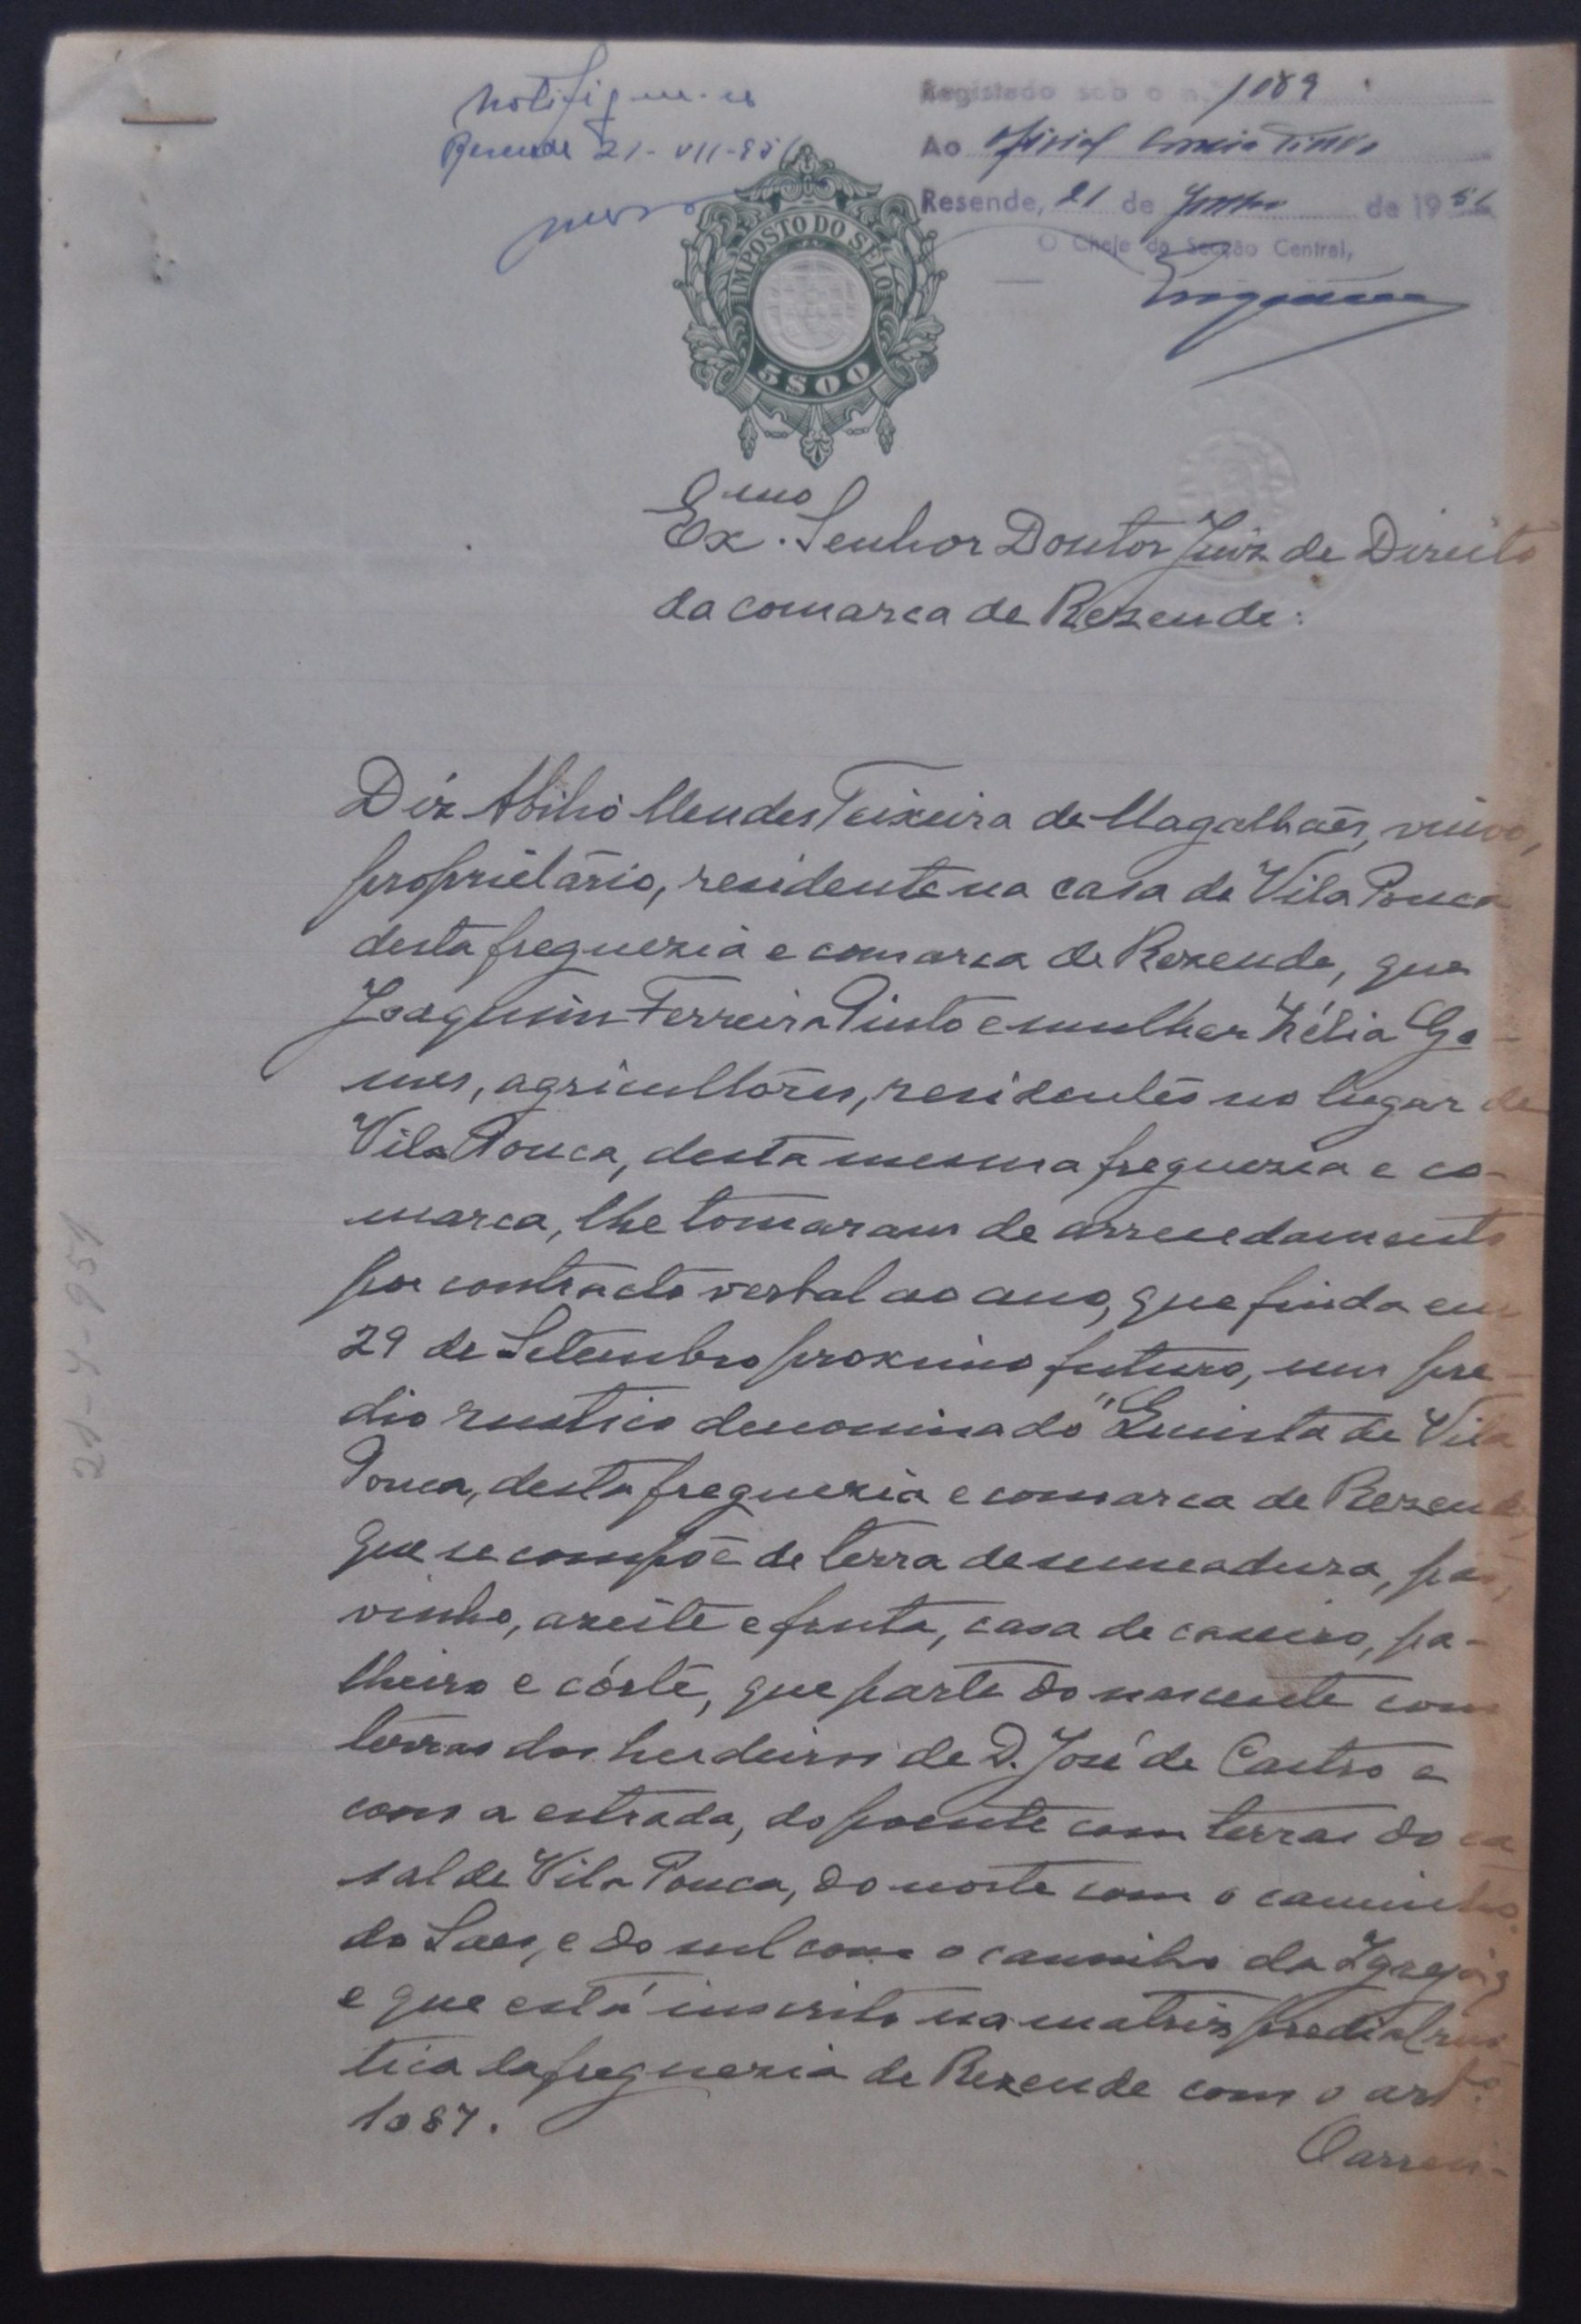 Notifique-se
Resende 21-VII-951
Registado sob o n.º 1089
Ao oficial
Resende, 21 de de 1951
O Chefe da Secção Central,
IMPOSTO DO SELO
5$00
Exmo. Senhor Doutor Juiz de Direito
da comarca de Rezende:
Diz Abilio Mendes Teixeira de Magalhães, viuvo,
proprietário, residente na casa de Vila Pouca
desta freguezia e comarca de Rezende, que
Joaquim Ferreira Pinto e mulher Zélia Go-
mes, agricultôres, residentes no lugar de
Vila Pouca, desta mesma freguezia e co-
marca, lhe tomaram de arrendamento
por contracto verbal ao ano, que finda em
29 de Setembro proximo futuro, um pre-
dio rustico denominado "Quinta de Vila
Pouca, desta freguezia e comarca de Rezende,
que se compõe de terra de semeadura, pão,
vinho, azeite e fruta, casa de caseiro, pa-
lheiro e córte, que parte do nascente com
terras dos herdeiros de D. José de Castro e
com a estrada, do poente com terras do ca
sal de Vila Pouca, do norte com o caminho
do e do sul com o caminho da Igreja
e que está inscrito na matriz predial rus
tica da freguezia de Rezende com o artº
1087.
O arren-
21-7-951